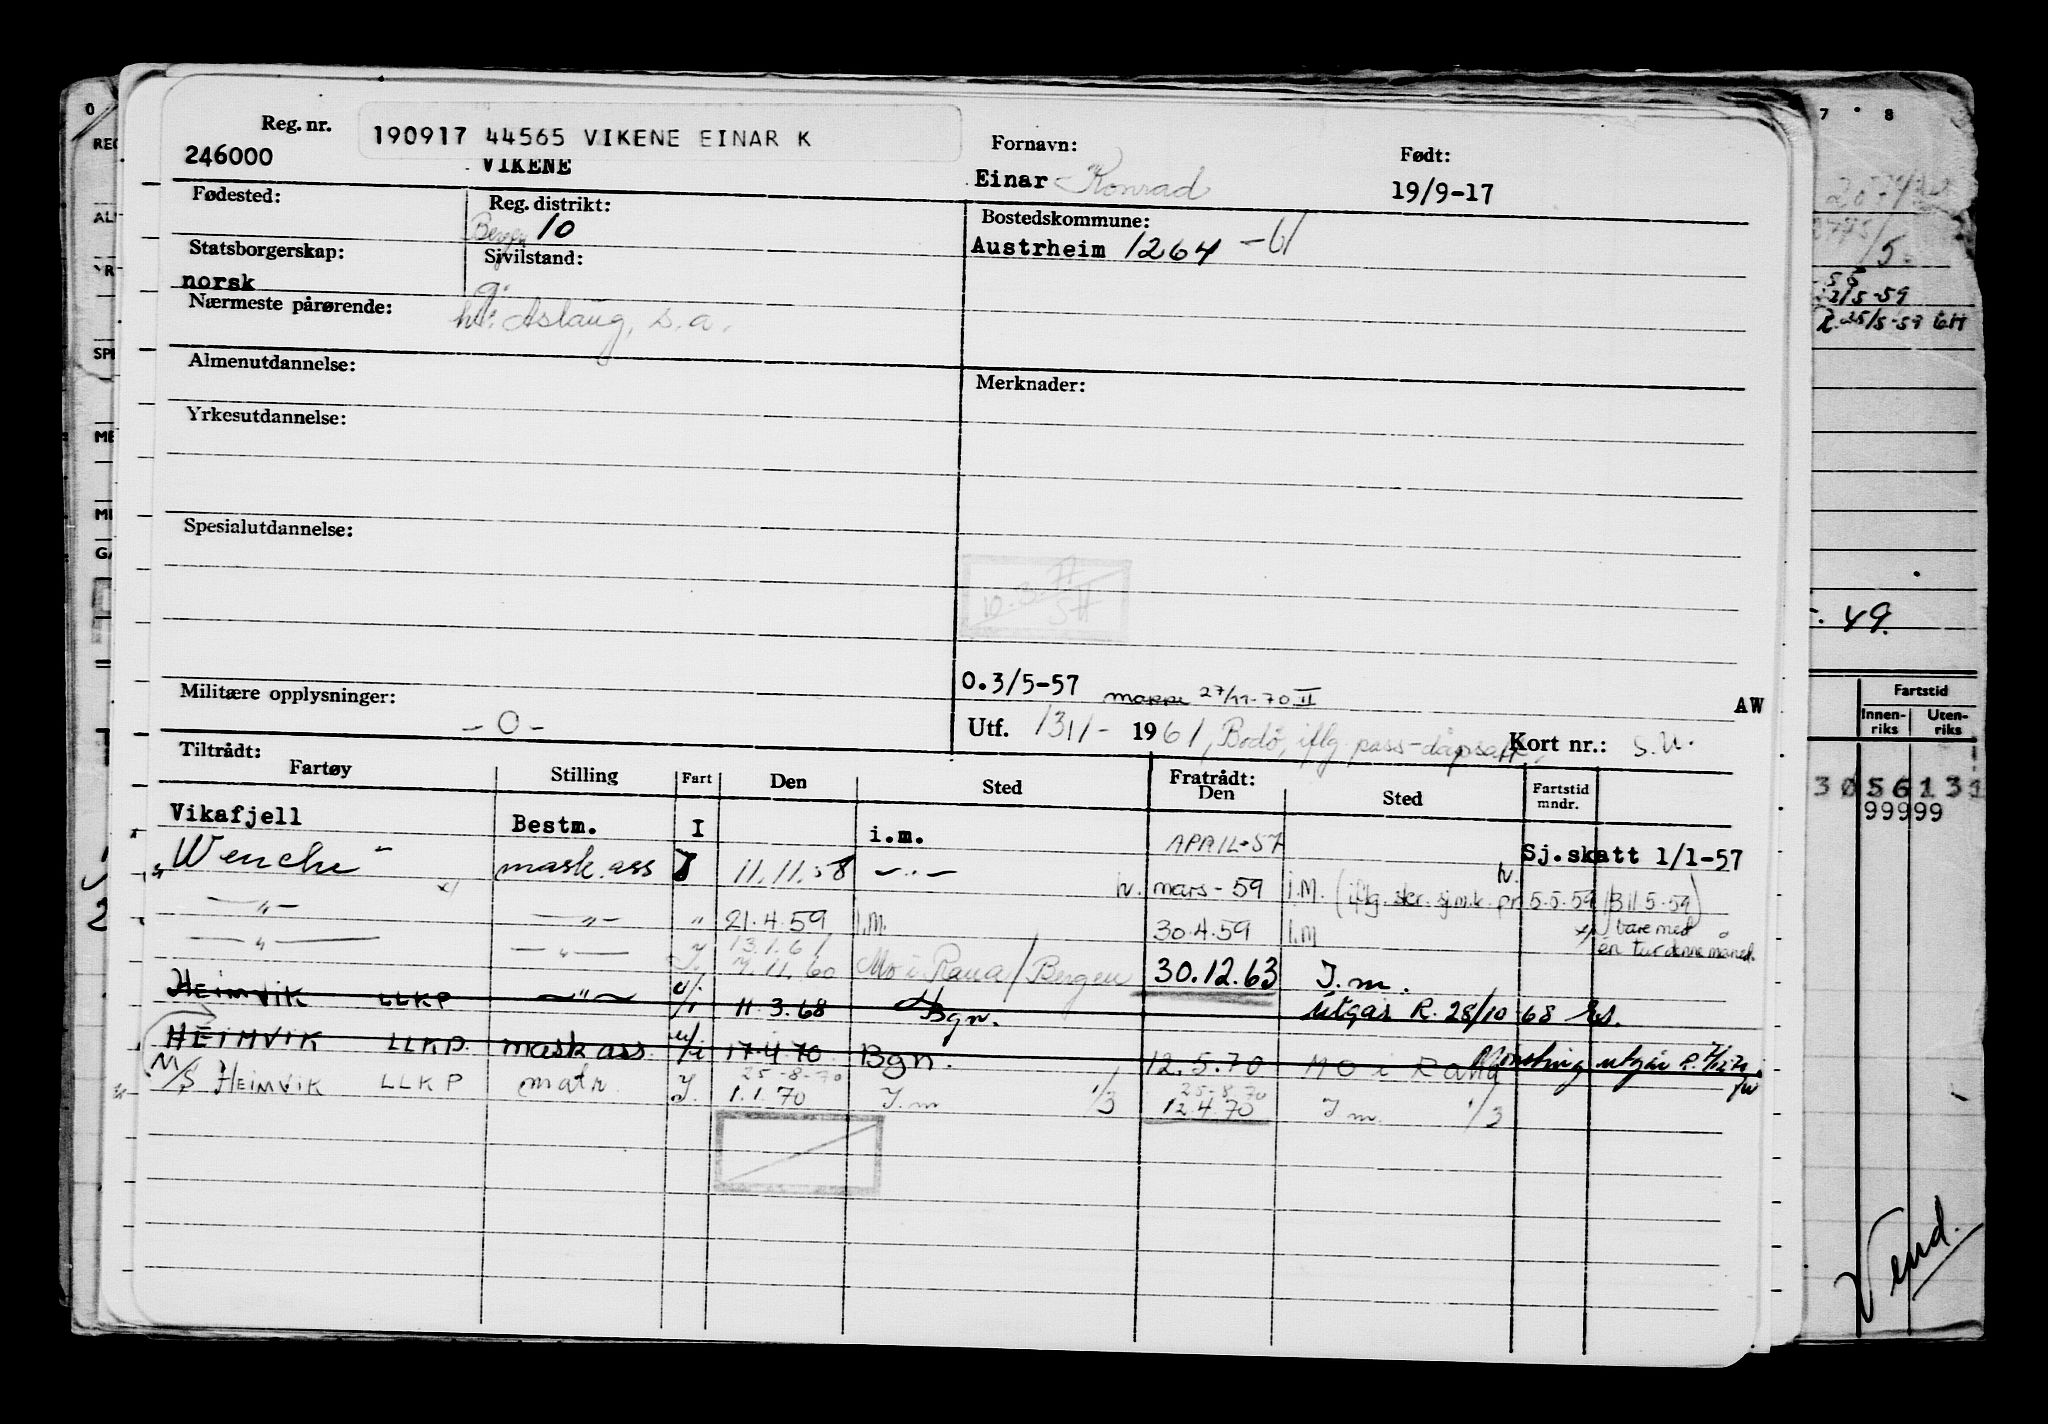 190917 44565 VIKENE EINAR K
Reg. nr.
246000
VIKENE
Fornavn:
Einar Konrad
Født:
19/9-17
Fødested:
Reg. distrikt:
Bergen 10
Bostedskommune:
Austrheim 1264 -61
Statsborgerskap:
norsk
Sivilstand:
g.
Nærmeste pårørende:
h: Aslaug, s.a.
Almenutdannelse:
Merknader:
Yrkesutdannelse:
Spesialutdannelse:
Militære opplysninger:
- O -
0.3/5-57 mappe 27/11-70 II
AW
Utf. 13/1- 1961, Bodø, iflg. pass-dåpsatt. Kort nr.: S.U.
Tiltrådt:
Fartøy Stilling Fart Den Sted
Fratrådt:
Den Sted Fartstid mndr.
Vikafjell Bestm. I i.m. APRIL-57 Sj.skatt 1/1-57
"Wenche" mask.ass I 11.11.58 -"- h. mars-59 I.M. (iflg. skr. sj.m.k. pr. 5.5.59 / 31.5.59)
x) bare med
én tur denne måned.
-"- -"- " 21.4.59 I.M. 30.4.59 I.M
13.1.61
-"- -"- I. 7.11.60 Mo i Rana/Bergen 30.12.63 I.m.
HEIMVIK LLKP -"- u/i 11.3.68 Bgn. utgår R. 28/10 68
HEIMVIK LLKP mask ass. u/i 17.4.70 Bgn. 12.5.70 MO i RANA Mønstring utgår
25-8-70 25-8-70
M/S HEIMVIK LLKP matr. I. 1.1.70 I.m 1/3 12.4.70 I m. 1/3
7 8
2/5-59
R. 25/5-59 GH
49.
Fartstid
Innen-riks Uten-riks
3056131
99999
Vend.